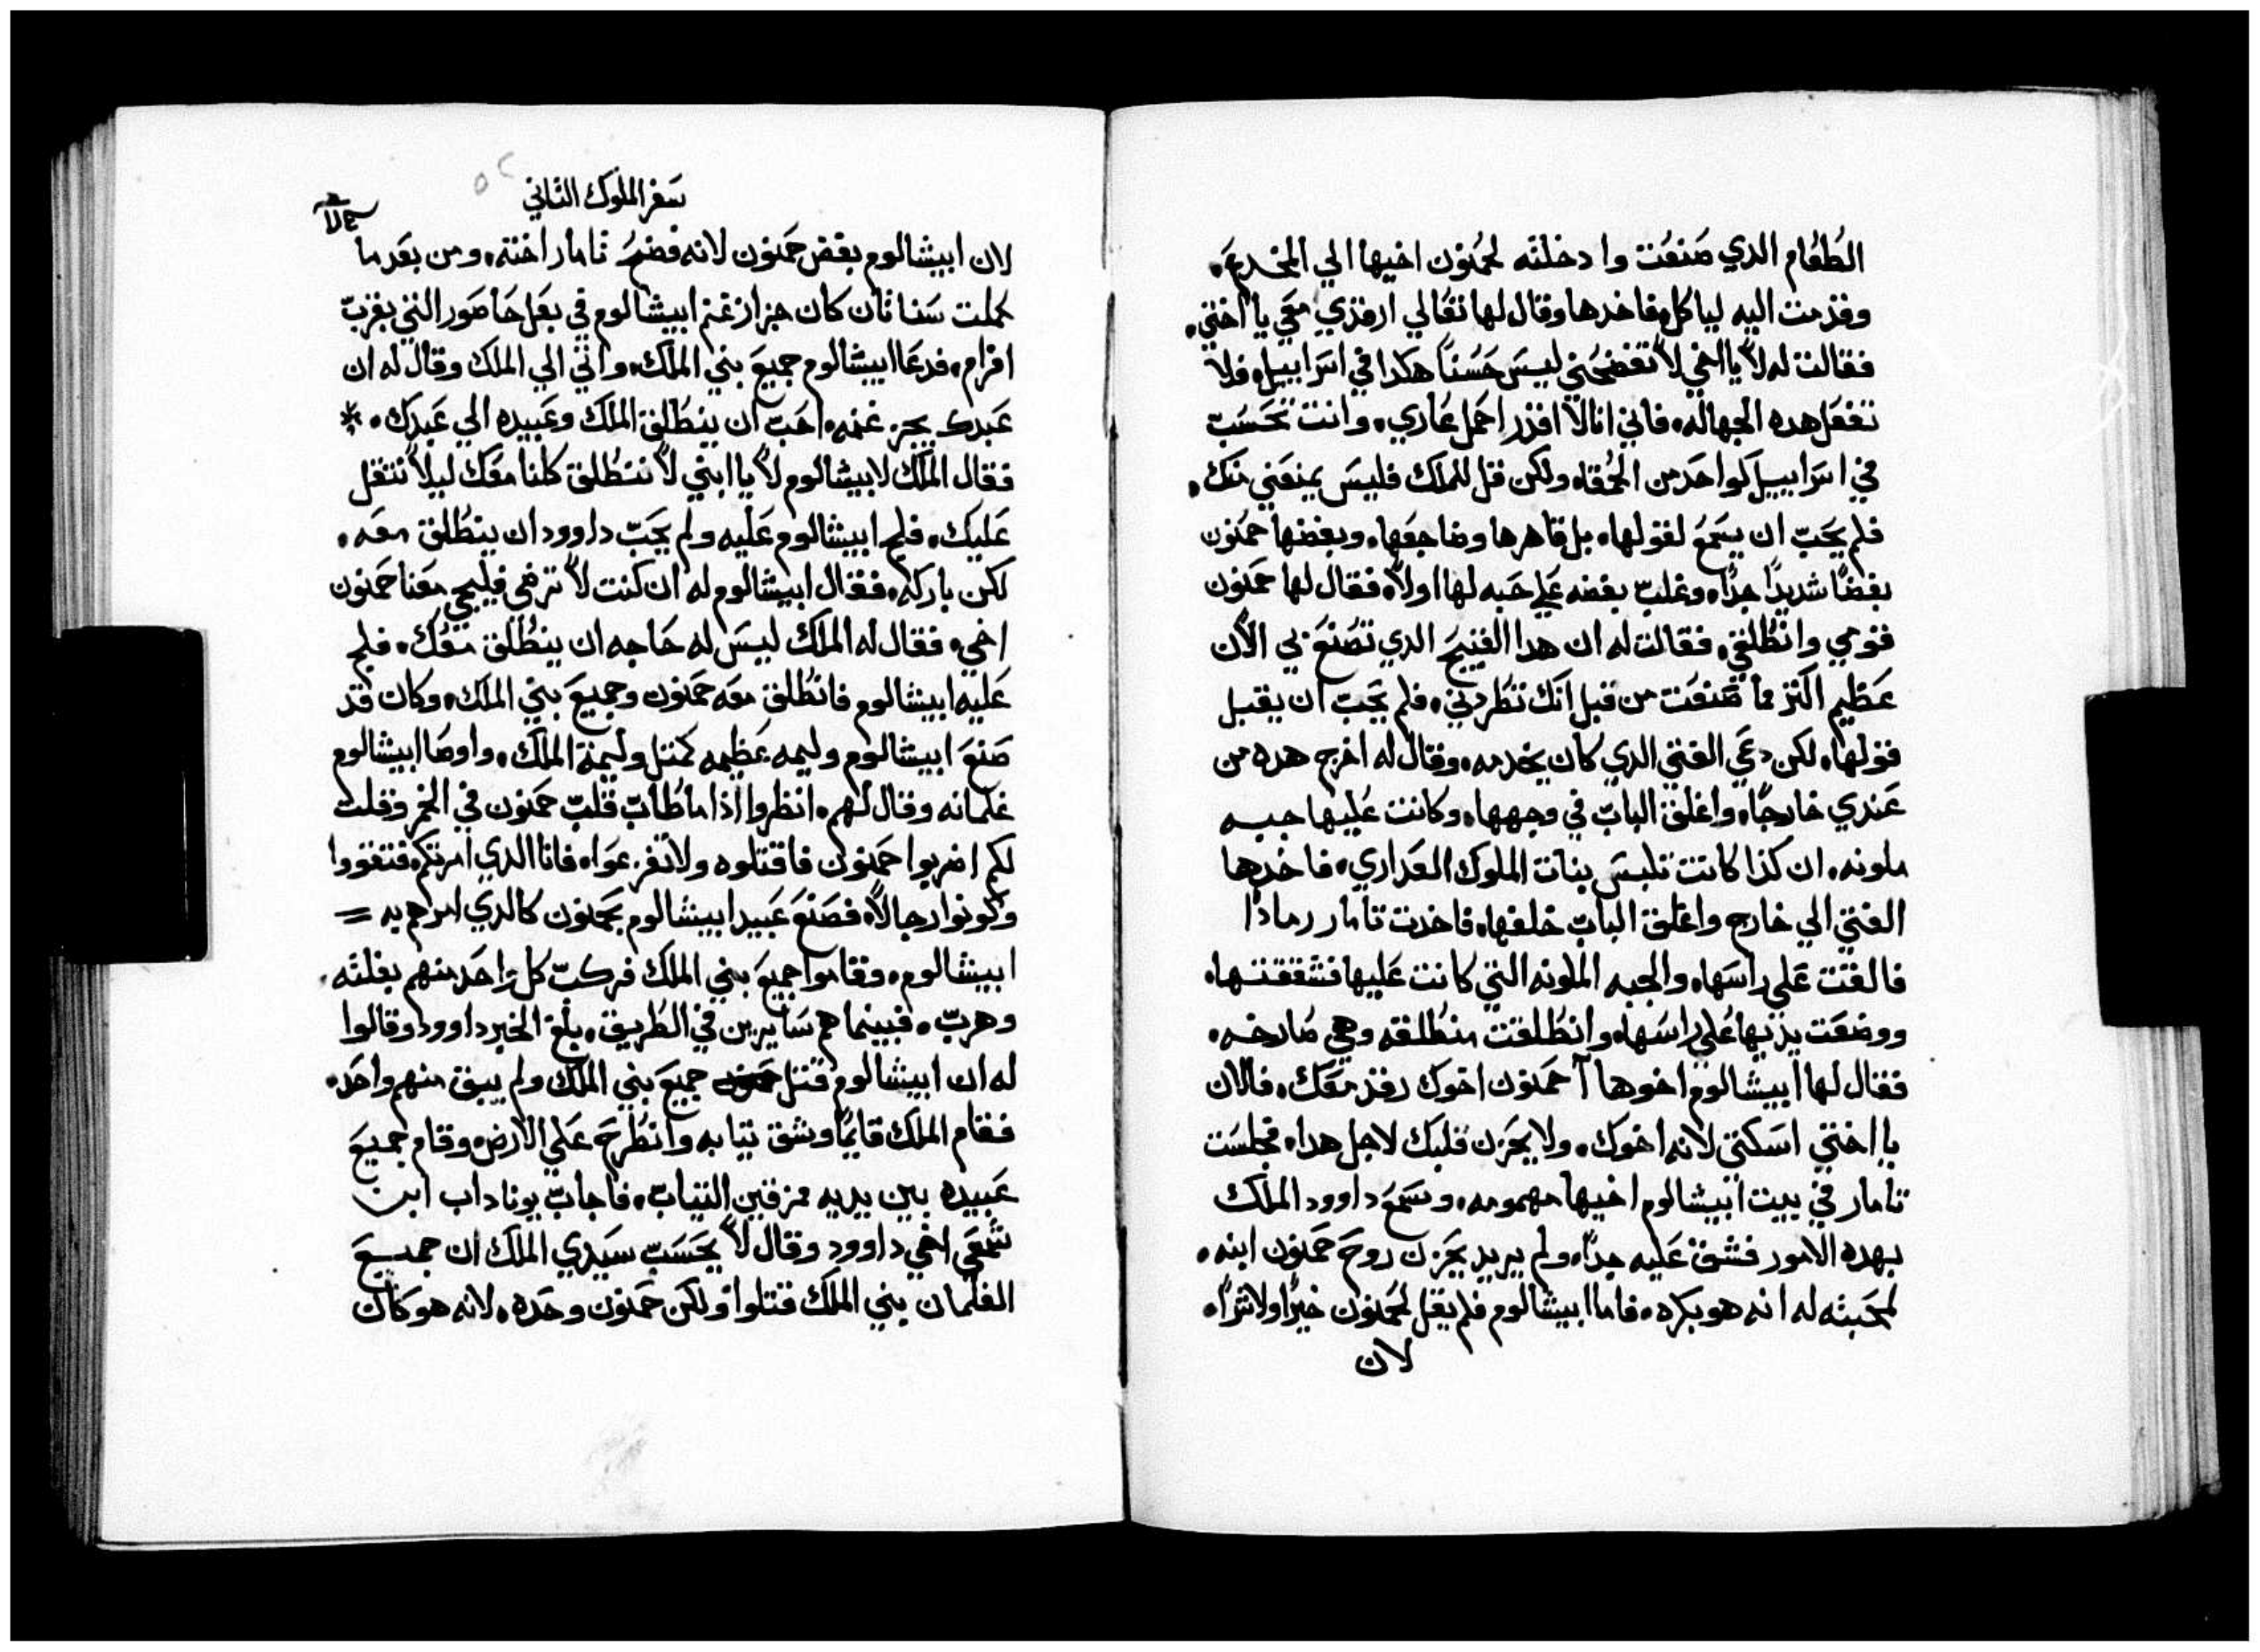 الطعام الدي صنعت وادخلته لحمنون اخيها الي المخدع.
وقدمت اليه لياكل. فاخدها وقال لها تعالي ارقدي معي يا اختي.
فقالت له لا يا اخي لا تفضحني ليس حسنا هكدا في اسراييل. فلا
تفعل هده الجهاله. فاني انا لا اقدر احمل عاري. وانت تحسب
في اسراييل كواحد من الحمقاه ولكن قل للملك فليس يمنعني منك.
فلم يحب ان يسمع لقولها. بل قاهرها وضاجعها. وبغضها حمنون
بغضا شديدا جدا. وغلب بغضه علي حبه لها اولا. فقال لها حمنون
قومي وانطلقي. فقالت له ان هدا القبيح الدي تصنع بي الان
عظيم اكتر مما صنعت من قبل انك تطردني. فلم يحب ان يقبل
قولها. لكن دعي الفتي الدي كان يخدمه. وقال له اخرج هده من
عندي خارجا. واغلق الباب في وجهها. وكانت عليها جبه
ملونه. ان كذا كانت تلبس بنات الملوك العداري. فاخدها
الفتي الي خارج واغلق الباب خلفها. فاخدت تامار رمادا
فالقت علي راسها. والجبه الملونه التي كانت عليها فشققتها.
ووضعت يديها علي راسها. وانطلقت منطلقه وهي صارخه.
فقال لها ابيشالوم اخوها آ حمنون اخوك رقد معك. فالان
يا اختي اسكتي لانه اخوك. ولا يحزن قلبك لاجل هدا. فجلست
تامار في بيت ابيشالوم اخيها مهمومه. وسمع داوود الملك
بهده الامور فشق عليه جدا. ولم يريد يحزن روح حمنون ابنه.
لمحبته له انه هو بكره. فاما ابيشالوم فلم يقل لحمنون خيرا ولا شرا.
لان
سفر الملوك التاني
لان ابيشالوم بغض حمنون لانه فضح تامار اخته. ومن بعد ما
كملت سنتان كان جزاز غنم ابيشالوم في بعل حاصور التي بقرب
افرام. فدعا ابيشالوم جميع بني الملك. واتي الي الملك وقال له ان
عبدك يجز غنمه. احب ان ينطلق الملك وعبيده الي عبدك. *
فقال الملك لابيشالوم لا يا ابني لا ننطلق كلنا معك ليلا نتقل
عليك. فلج ابيشالوم عليه ولم يحب داوود ان ينطلق معه.
لكن باركه. فقال ابيشالوم له ان كنت لا ترضي فليجي معنا حمنون
اخي. فقال له الملك ليس له حاجه ان ينطلق معك. فلج
عليه ابيشالوم فانطلق معه حمنون وجميع بني الملك. وكان قد
صنع ابيشالوم وليمه عظيمه كمتل وليمة الملك. واوصا ابيشالوم
غلمانه وقال لهم. انظروا اذا ما طاب قلب حمنون في الخمر وقلت
لكم اضربوا حمنون فاقتلوه ولا تفزعوا. فانا الدي امرتكم. فتقووا
وكونوا رجالا. فصنع عبيد ابيشالوم بحمنون كالدي امرهم به =
ابيشالوم. وقاموا جميع بني الملك فركب كل واحد منهم بغلته.
وهرب. فبينما هم سايرين في الطريق. بلغ الخبر داوود وقالوا
له ان ابيشالوم قتل جميع بني الملك ولم يبق منهم واحد.
فقام الملك قايما وشق تيابه وانطرح علي الارض. وقام جميع
عبيده بين يديه ممزقين التياب. فاجاب يوناداب ابن
شمعي اخي داوود وقال لا يحسب سيدي الملك ان جميع
الغلمان بني الملك قتلوا ولكن حمنون وحده. لانه هو كان